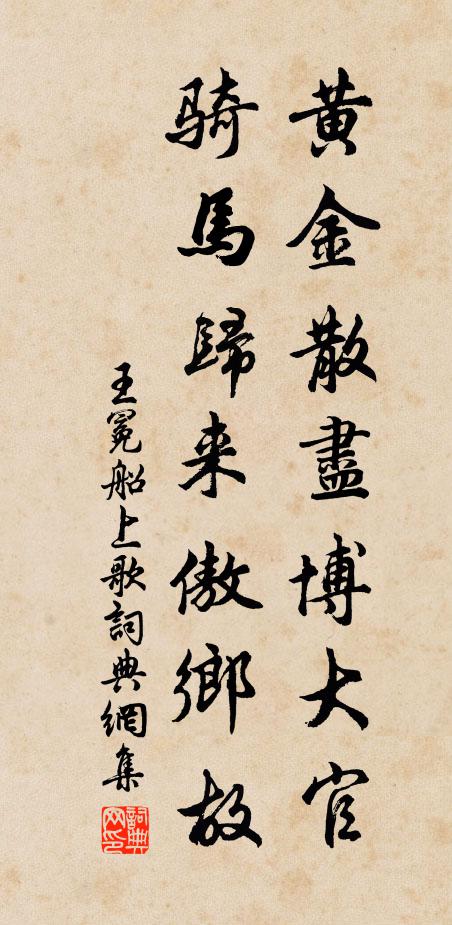 黃金散盡博大官
騎馬歸来傲鄉故
王冕船上歌詞典網集
詞典网印